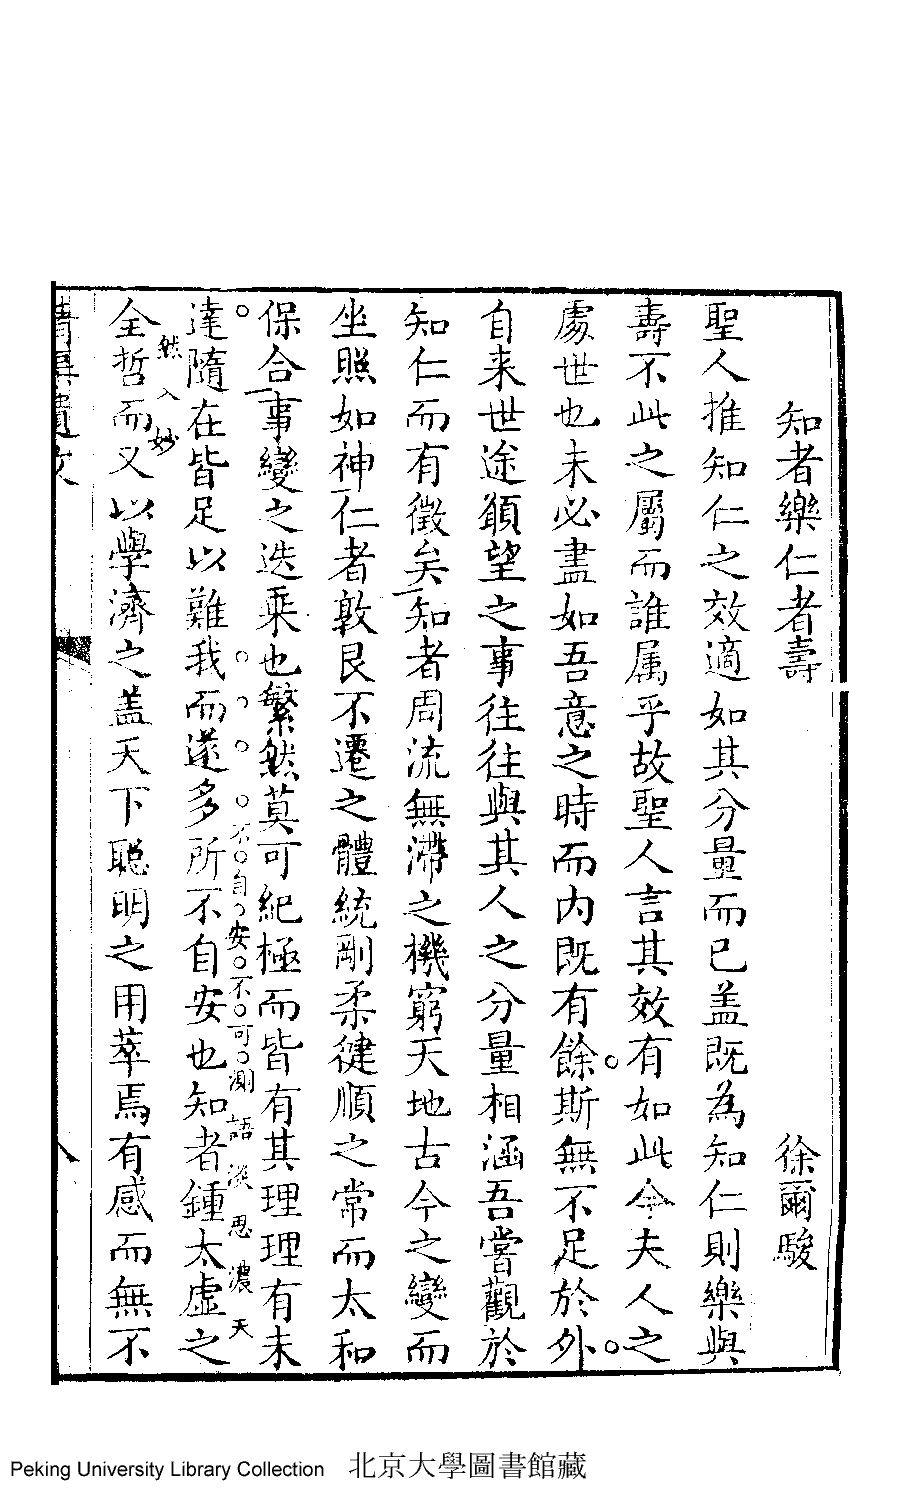 知者樂仁者壽　徐爾駿
聖人推知仁之效適如其分量而已盖既為知仁則樂與
壽不此之屬而誰属乎故聖人言其效有如此今夫人之
處世也未必盡如吾意之時而内既有餘斯無不足於外
自来世途願望之事往往與其人之分量相涵吾嘗觀於
知仁而有徵矣知者周流無滯之機窮天地古今之變而
坐照如神仁者敦艮不遷之體統剛柔健順之常而太和
保合事變之迭乘也繁然莫可紀極而皆有其理理有未
不自安不可測語淡思濃天
達隨在皆足以難我而遂多所不自安也知者鍾太虛之
然入妙
全哲而又以學濟之盖天下聰明之用萃焉有感而無不
八
Peking University Library Collection 北京大學圖書館藏